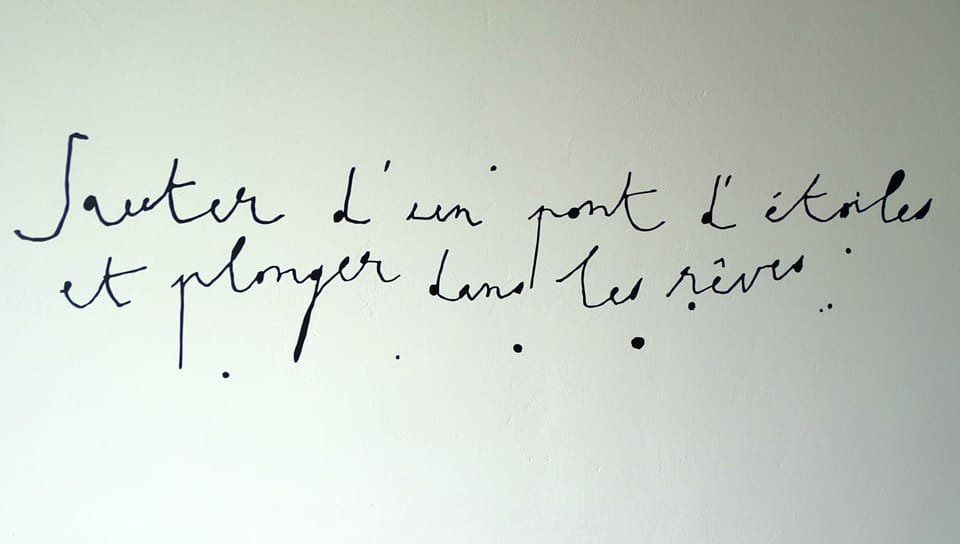 Sauter d'un pont d'étoiles
et plonger dans les rêves